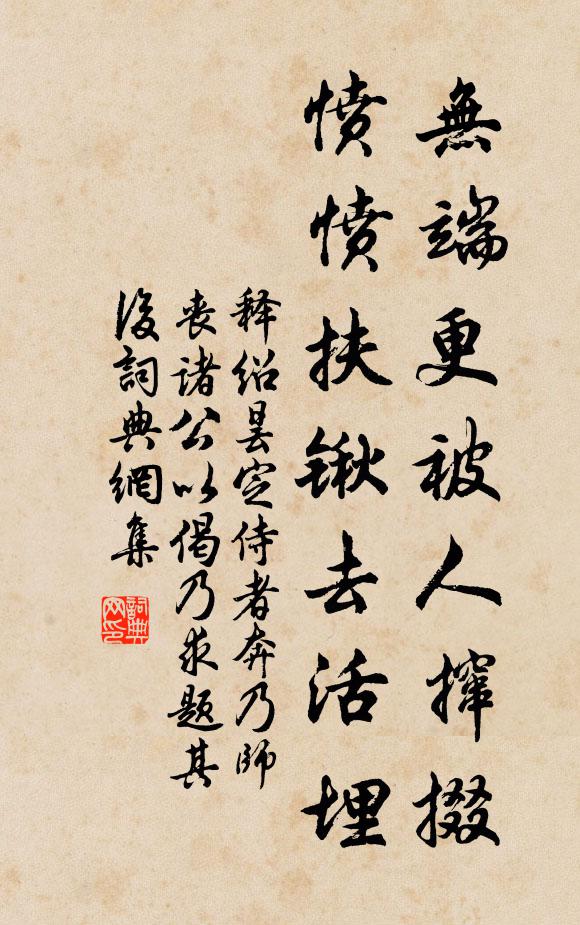 無端更被人撺掇
憤憤扶锹去活埋
释绍昙定侍者奔乃師
丧諸公以偈乃求題其
後詞典網集
詞典网印